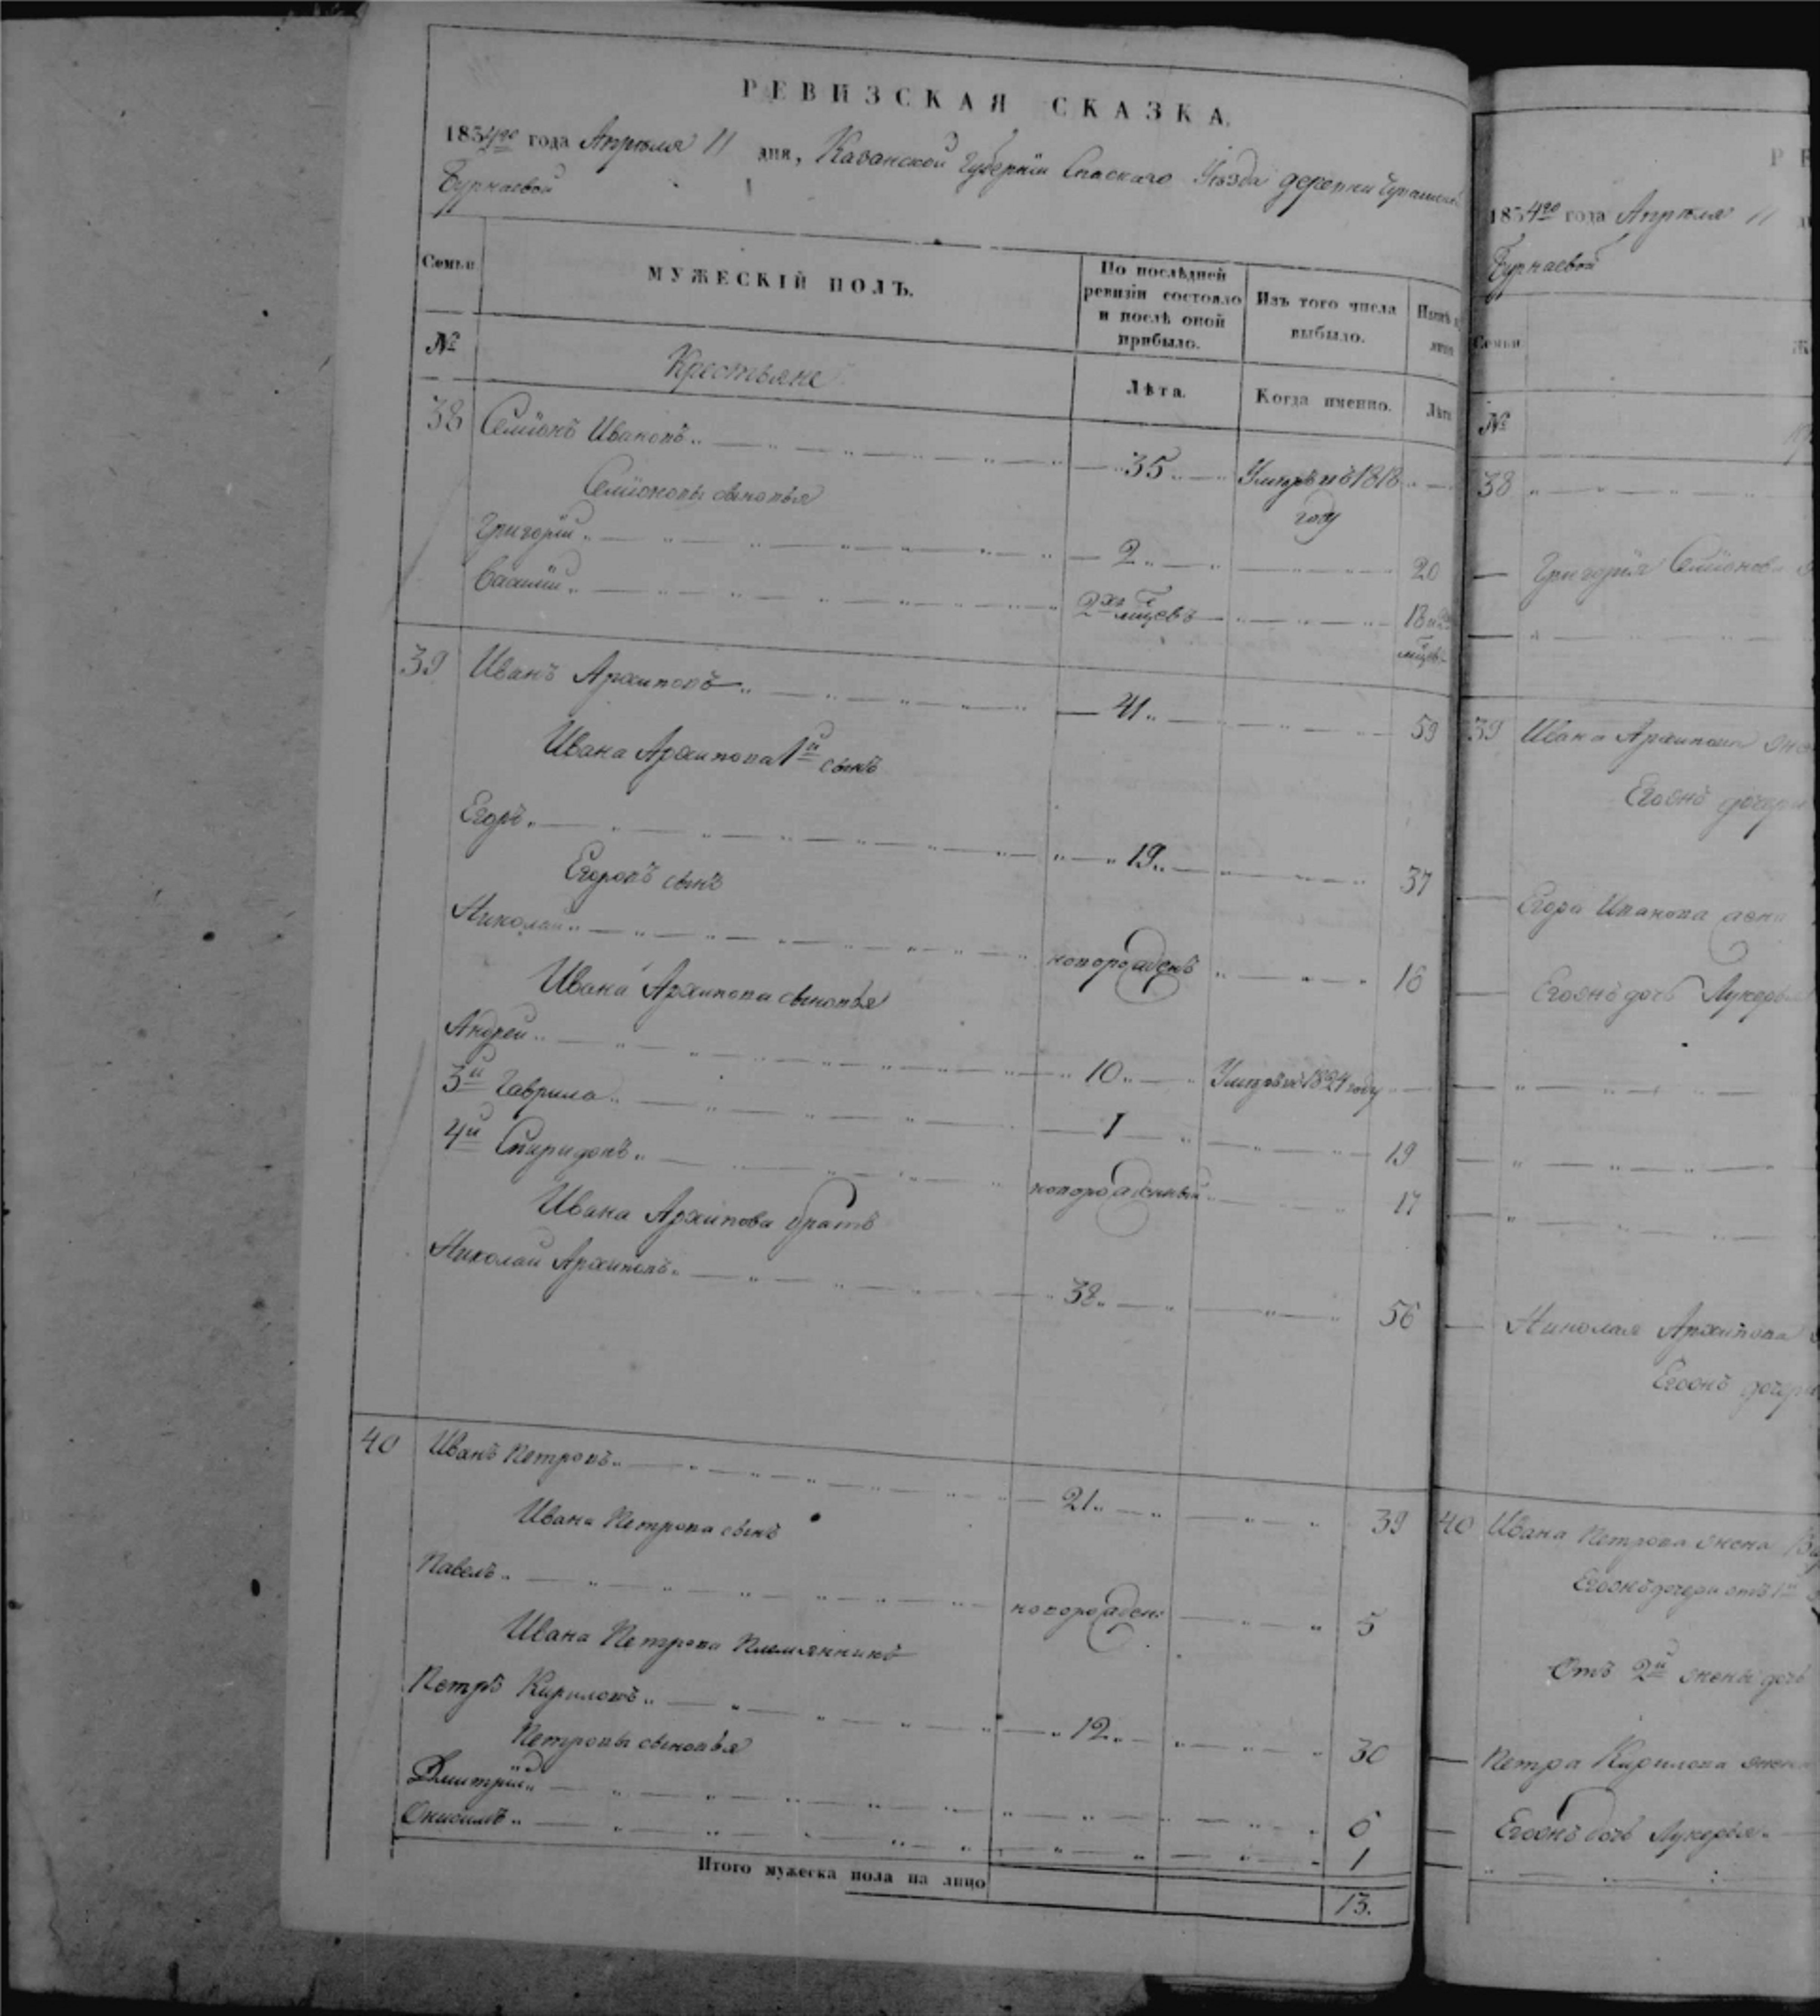 РЕВИЗСКАЯ СКАЗКА.
1834го года Апреля 11 дня, Казанской Губернiи Спаскаго Уѣзда деревни
Бурнаевой
Семьи МУЖЕСКIЙ ПОЛЪ. По послѣдней ревизiи состояло и послѣ оной прибыло. Изъ того числа выбыло.
№ Крестьяне Лѣта. Когда именно. Лѣта
38 Семiонъ Ивановъ 35 Умре въ 1818 году
Семiоновы сыновья
Григорiй 2 20
Василiй 2хъ мцевъ 18 и мцевъ
39 Иванъ Архиповъ 41 59
Ивана Архипова 1й сынъ
Егоръ 19 37
Егоровъ сынъ
Николай новорожденъ 16
Ивана Архипова сыновья
Андрей 10 Умре въ 1824 году
3й Гаврила 1 19
4й Спиридонъ новорожденный 17
Ивана Архипова братъ
Николай Архиповъ 38 56
40 Иванъ Петровъ 21 39
Ивана Петрова сынъ
Павелъ новорожден: 5
Ивана Петрова племянникъ
Петръ Кириловъ 12 30
Петровы сыновья
Дмитрiй 6
Онисимъ 1
Итого мужеска пола на лицо 13.
1834го года Апрѣля 11
Бурнаевой
Семьи
№
38
Григорiя Семiонова
39 Ивана Архипова жена
Егоонъ дочери
Егора Иванова жена
Егоонъ дочь Лукерья
Николая Архипова
Егоонъ дочери
40 Ивана Петрова жена
Егоонъ дочери отъ 1й
Отъ 2й жены дочь
Петра Кирилова жена
Егоонъ дочь Лукерья